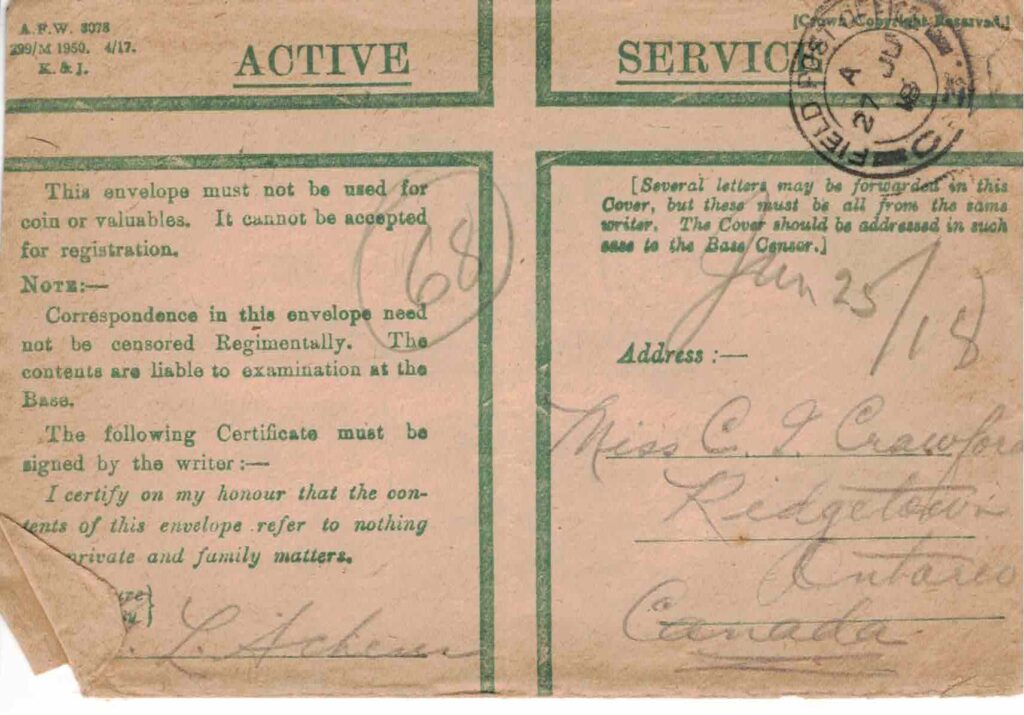 A.F.W. 3078
299/M 1950. 4/17.
K. & J.
ACTIVE
[Crown Copyright Reserved.]
SERVIC
FIELD POST OFFICE
A
27 JU
18
This envelope must not be used for
coin or valuables. It cannot be accepted
for registration.
NOTE:—
Correspondence in this envelope need
not be censored Regimentally. The
contents are liable to examination at the
Base.
The following Certificate must be
signed by the writer:—
I certify on my honour that the con-
tents of this envelope refer to nothing
private and family matters.
68
L
[Several letters may be forwarded in this
Cover, but these must be all from the same
writer. The Cover should be addressed in such
case to the Base Censor.]
25/18
Address :—
Miss C. I Crawford
Ridgetown
Ontario
Canada